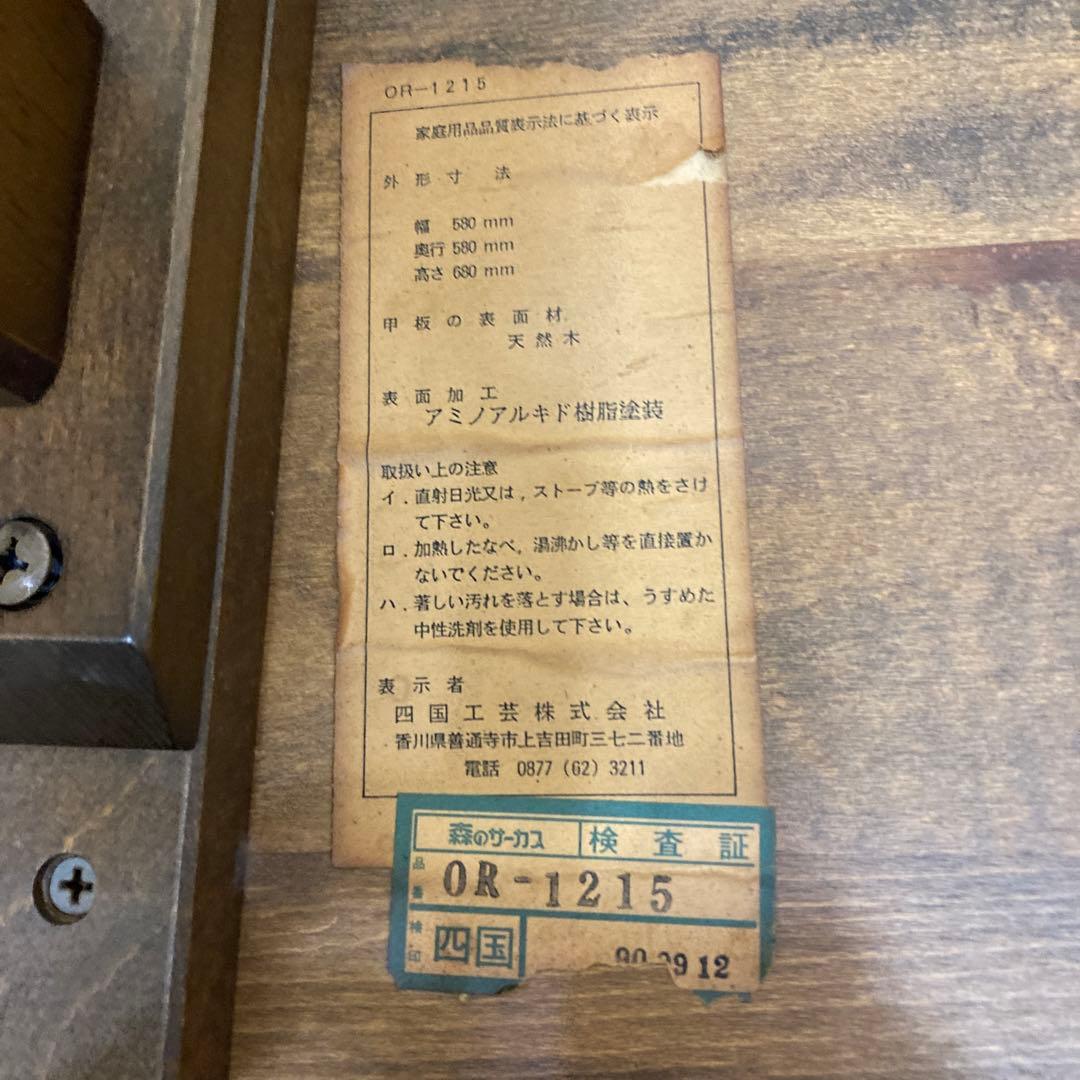 OR-1215
家庭用品品質表示法に基づく表示
外形寸法
幅 580 mm
奥行 580 mm
高さ 680 mm
甲板の表面材
天然木
表面加工
アミノアルキド樹脂塗装
取扱い上の注意
イ．直射日光又は，ストーブ等の熱をさけ
て下さい。
ロ．加熱したなべ，湯沸かし等を直接置か
ないでください。
ハ．著しい汚れを落とす場合は、うすめた
中性洗剤を使用して下さい。
表示者
四国工芸株式会社
香川県善通寺市上吉田町三七二番地
電話 0877 (62) 3211
森のサーカス 検査証
品番 OR-1215
検印 四国 90 09 12